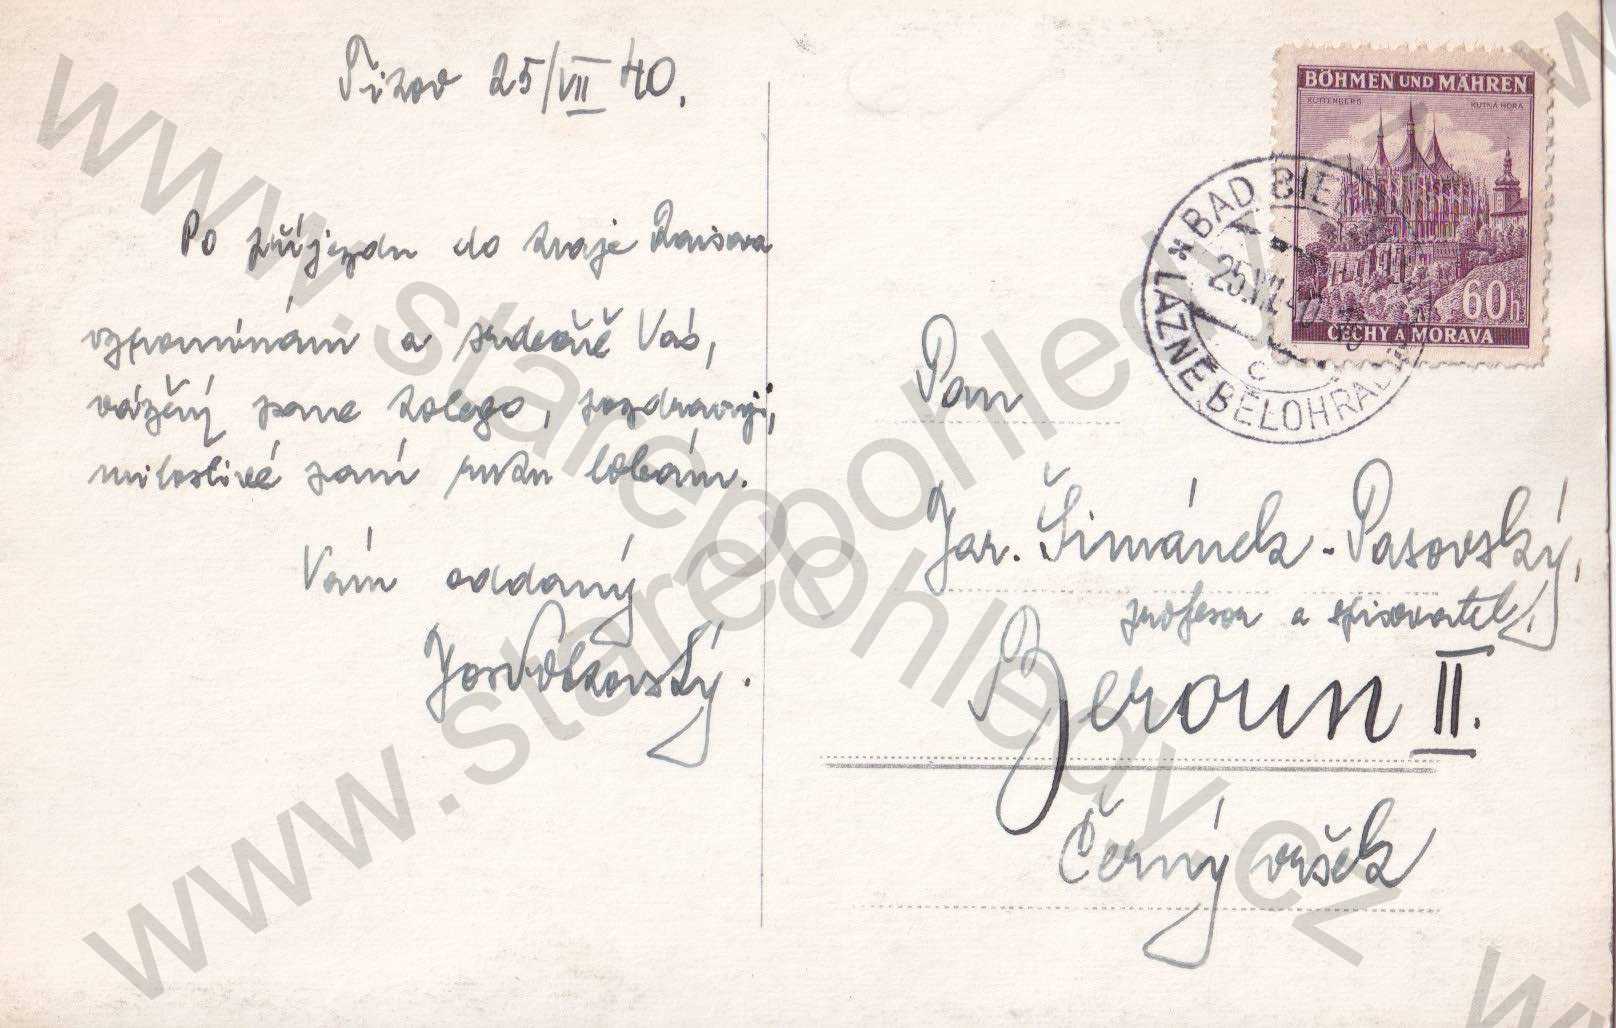 25/VII 40.
Po příjezdu do kraje Raisova
vzpomínám a srdečně Vás,
vážený pane kolego, pozdravuji,
milostivé paní ruku líbám.
Vám oddaný
BÖHMEN UND MÄHREN
KUTTENBERG KUTNÁ HORA
60h
ČECHY A MORAVA
BAD
25.VII.40
LÁZNĚ BĚLOHRAD
c
Pan
Jar. Šimánek-Pasovský,
profesor a spisovatel,
Beroun II.
Černý vršek
www.starepohledy.cz
www.starepohledy.cz